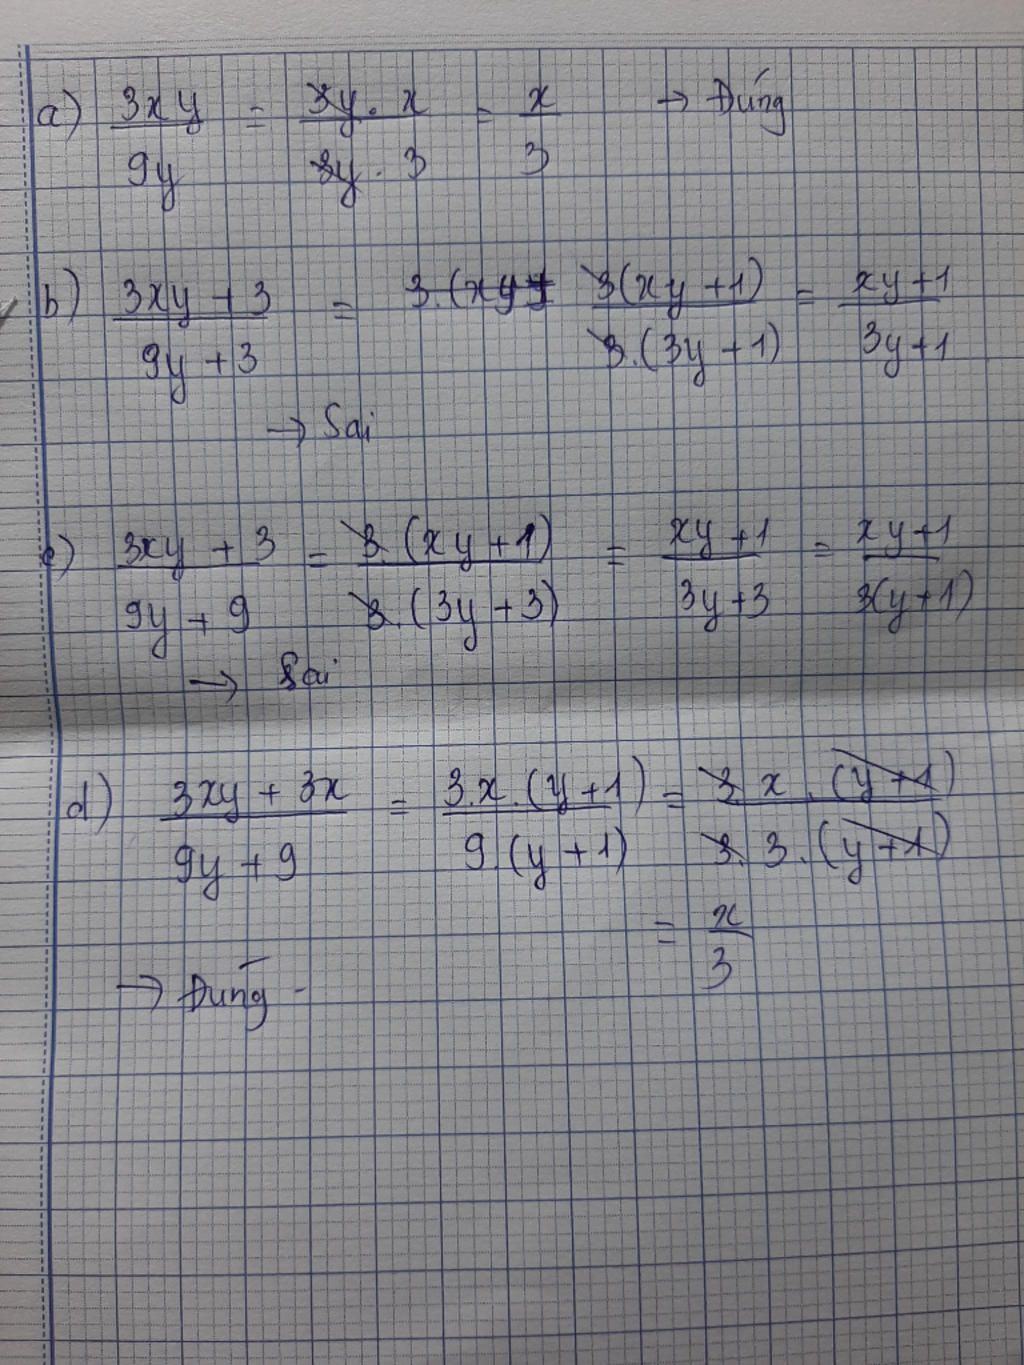 a) 3xy/9y = 3y. x/3y. 3 = x/3 → Đúng
b) 3xy + 3/9y + 3 = 3(xy +1)/3.(3y +1) = xy +1/3y +1
→ Sai
c) 3xy + 3/9y + 9 = 3.(xy +1)/3.(3y +3) = xy +1/3y +3 = xy +1/3(y+1)
→ Sai
d) 3xy + 3x/9y + 9 = 3.x.(y+1)/9.(y+1) = 3.x.(y+1)/3.3.(y+1)
= x/3
→ Đúng.